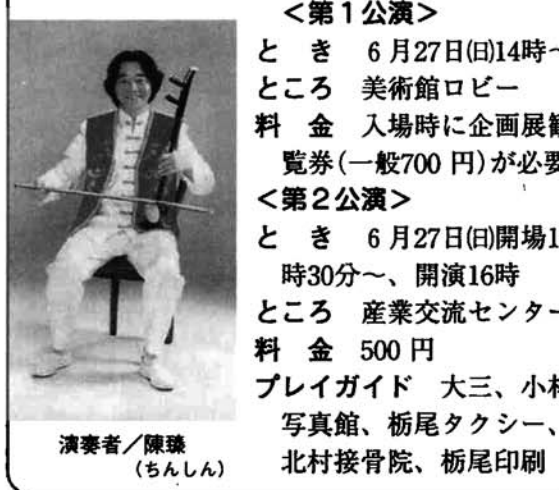 <第1公演>
と き 6月27日(日)14時~
ところ 美術館ロビー
料 金 入場時に企画展観
覧券(一般700 円)が必要
<第2公演>
と き 6月27日(日)開場1
時30分~、開演16時
ところ 産業交流センター
料 金 500 円
プレイガイド 大三、小林
写真館、栃尾タクシー、
北村接骨院、栃尾印刷
演奏者/陳臻
(ちんしん)